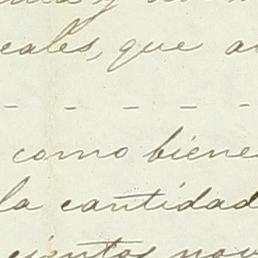 eales, que a
- - - - -
como biene
la cantidad
cientos nov